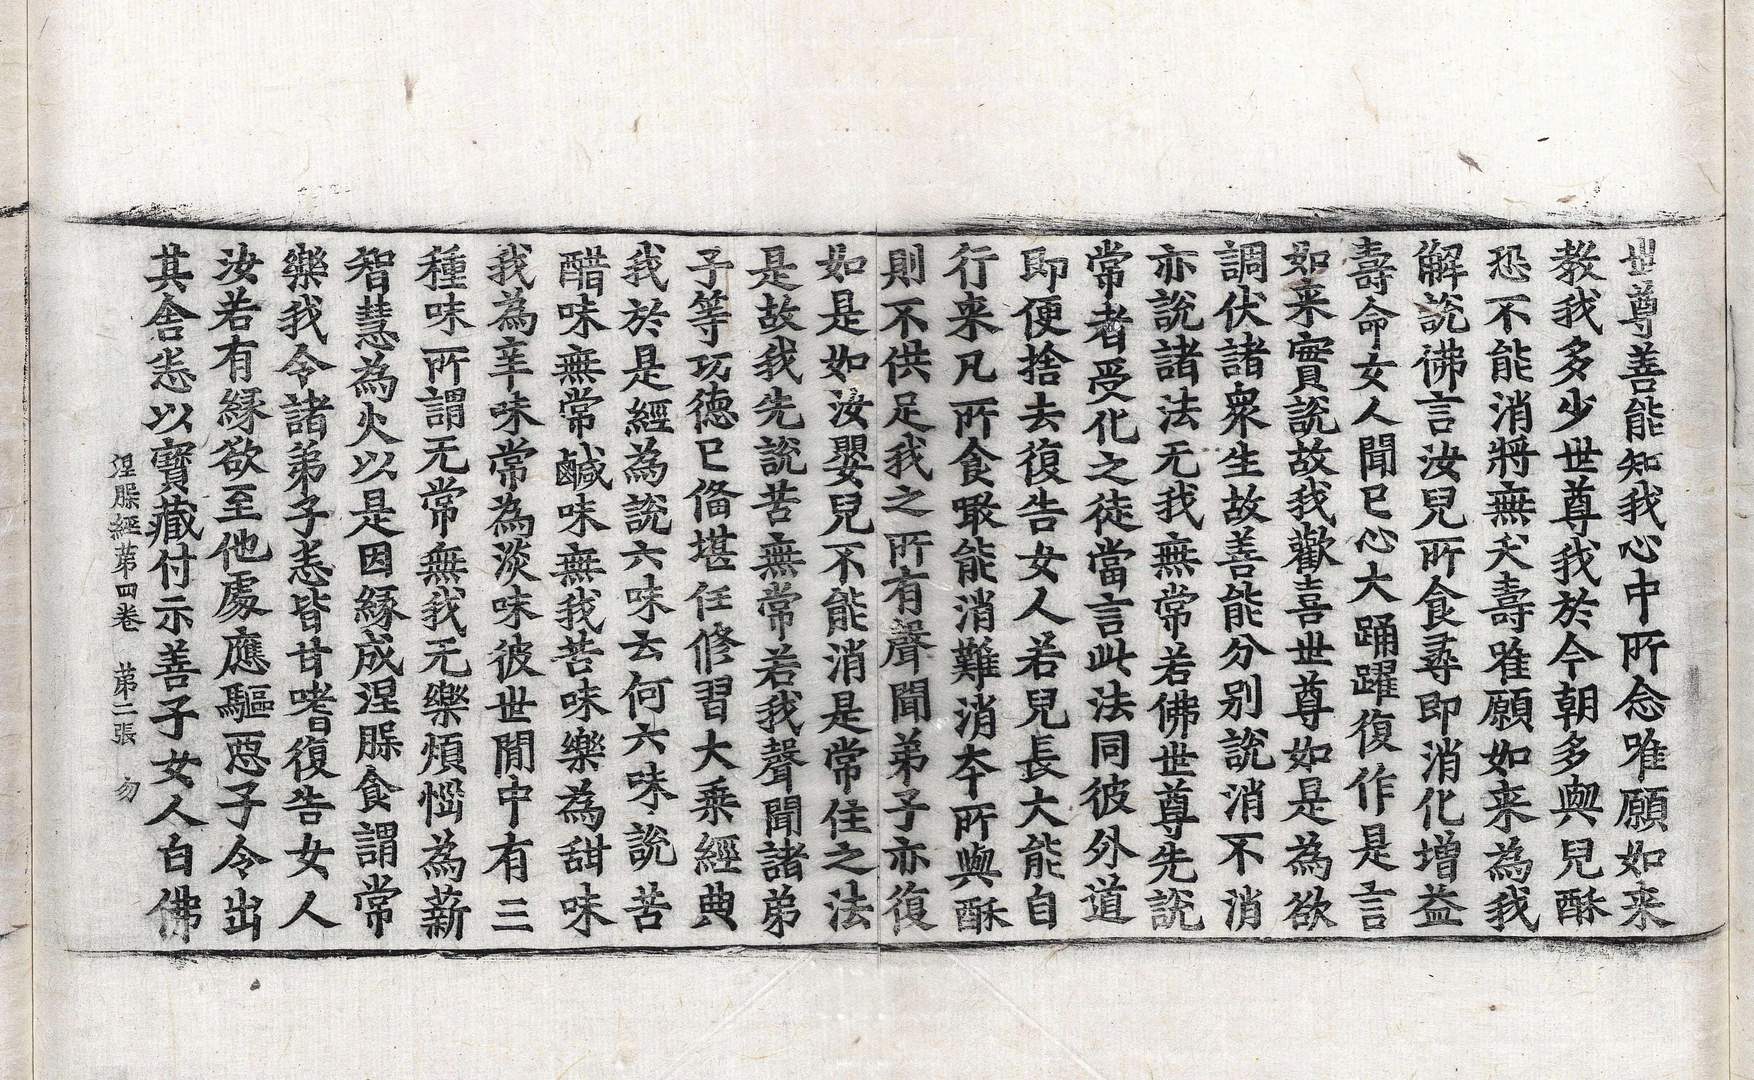 世尊善能知我心中所念唯願如来
教我多少世尊我於今朝多與兒酥
恐不能消將無夭壽唯願如来為我
解說佛言汝兒所食尋即消化增益
壽命女人聞已心大踊躍復作是言
如来實說故我歡喜世尊如是為欲
調伏諸衆生故善能分别說消不消
亦說諸法无我無常若佛世尊先說
常者受化之徒當言此法同彼外道
即便捨去復告女人若兒長大能自
行来凡所食噉能消難消夲所與酥
則不供足我之所有聲聞弟子亦復
如是如汝嬰兒不能消是常住之法
是故我先說苦無常若我聲聞諸弟
子等功德已俻堪任修習大乗經典
我於是經為說六味云何六味說苦
醋味無常鹹味無我苦味樂為甜味
我為辛味常為淡味彼世間中有三
種味所謂无常無我无樂煩惱為薪
智慧為火以是因縁成涅槃食謂常
樂我令諸弟子恚皆甘嗜復告女人
汝若有縁欲至他處應驅惡子令出
其舍恚以寳藏付示善子女人白佛
涅槃經苐四卷 苐二張 勿